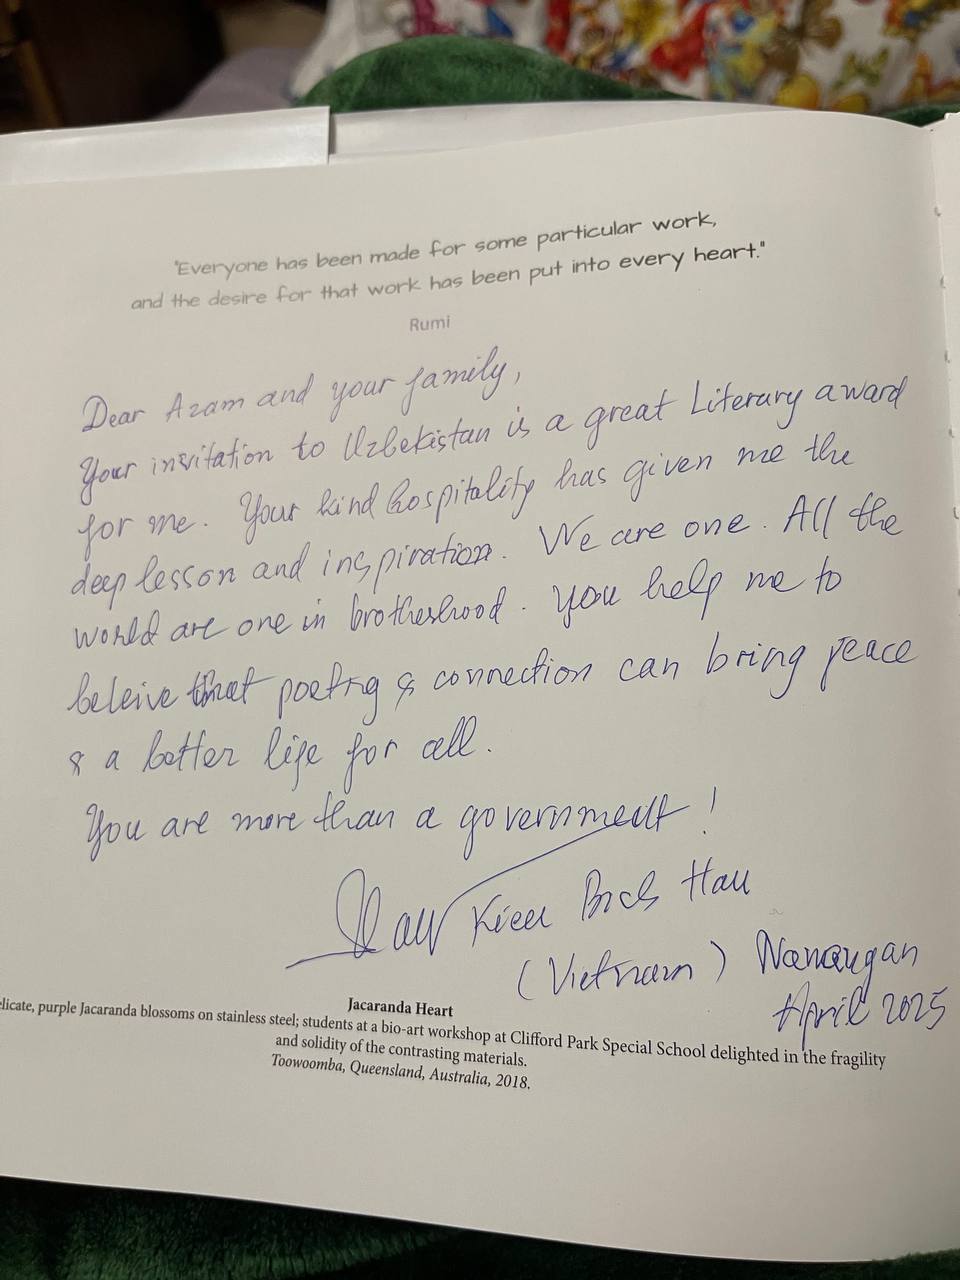 "Everyone has been made for some particular work,
and the desire for that work has been put into every heart."
Rumi
Dear Azam and your family,
Your invitation to Uzbekistan is a great Literary award
for me. Your kind hospitality has given me the
deep lesson and inspiration. We are one. All the
world are one in brotherhood. You help me to
beleive that poetry & connection can bring peace
& a better life for all.
You are more than a government!
Kieu Bich Hau
(Vietnam) Namangan
April 2025
Jacaranda Heart
elicate, purple Jacaranda blossoms on stainless steel; students at a bio-art workshop at Clifford Park Special School delighted in the fragility
and solidity of the contrasting materials.
Toowoomba, Queensland, Australia, 2018.